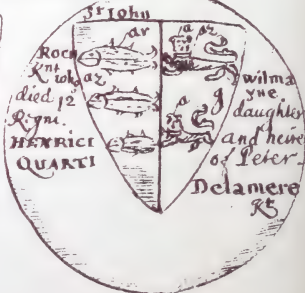 Sr John
ar
a ar
Roch
Knt who
az
died 12
Rigni.
HENRICI
QUARTI
a
g
Wilma
yne
daughter
and heire
of Peter
Delamere
Kt